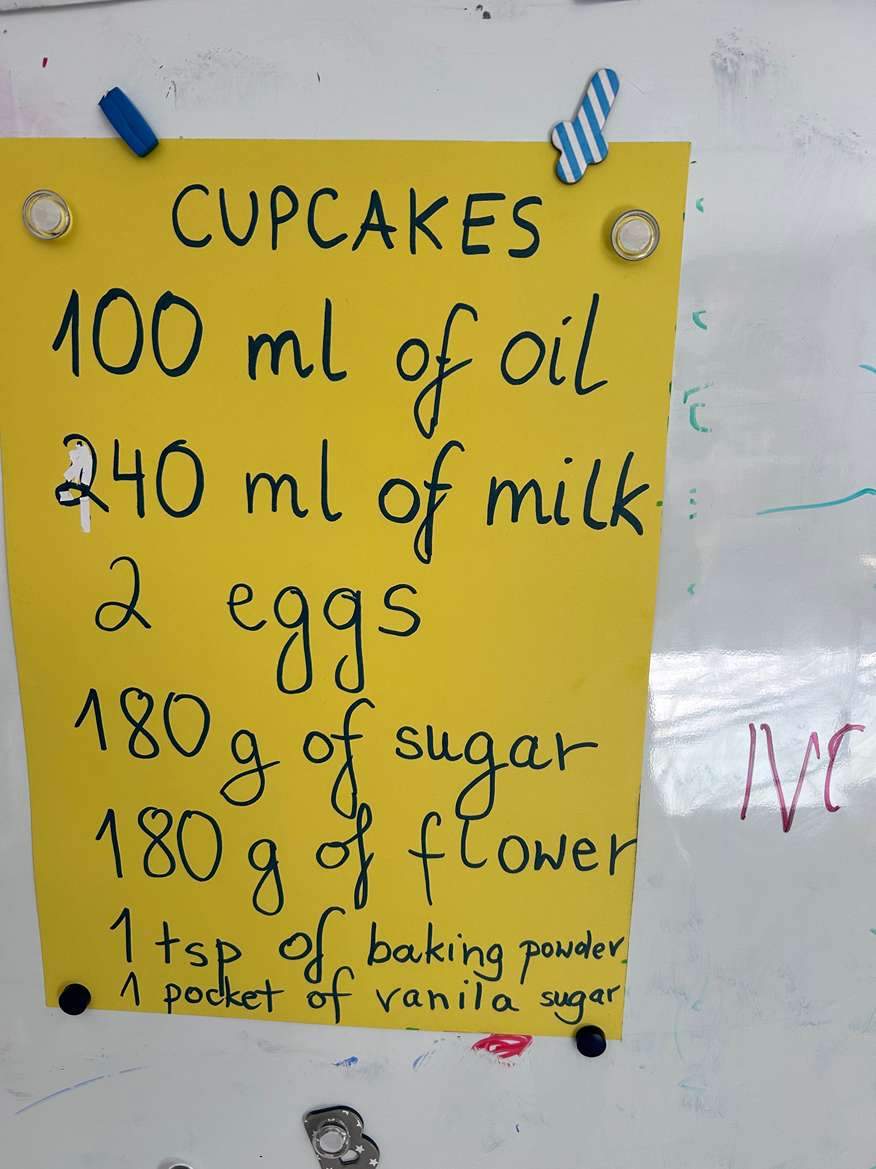 CUPCAKES
100 ml of oil
240 ml of milk
2 eggs
180 g of sugar
180 g of flower
1 tsp of baking powder
1 pocket of vanila sugar
IVC